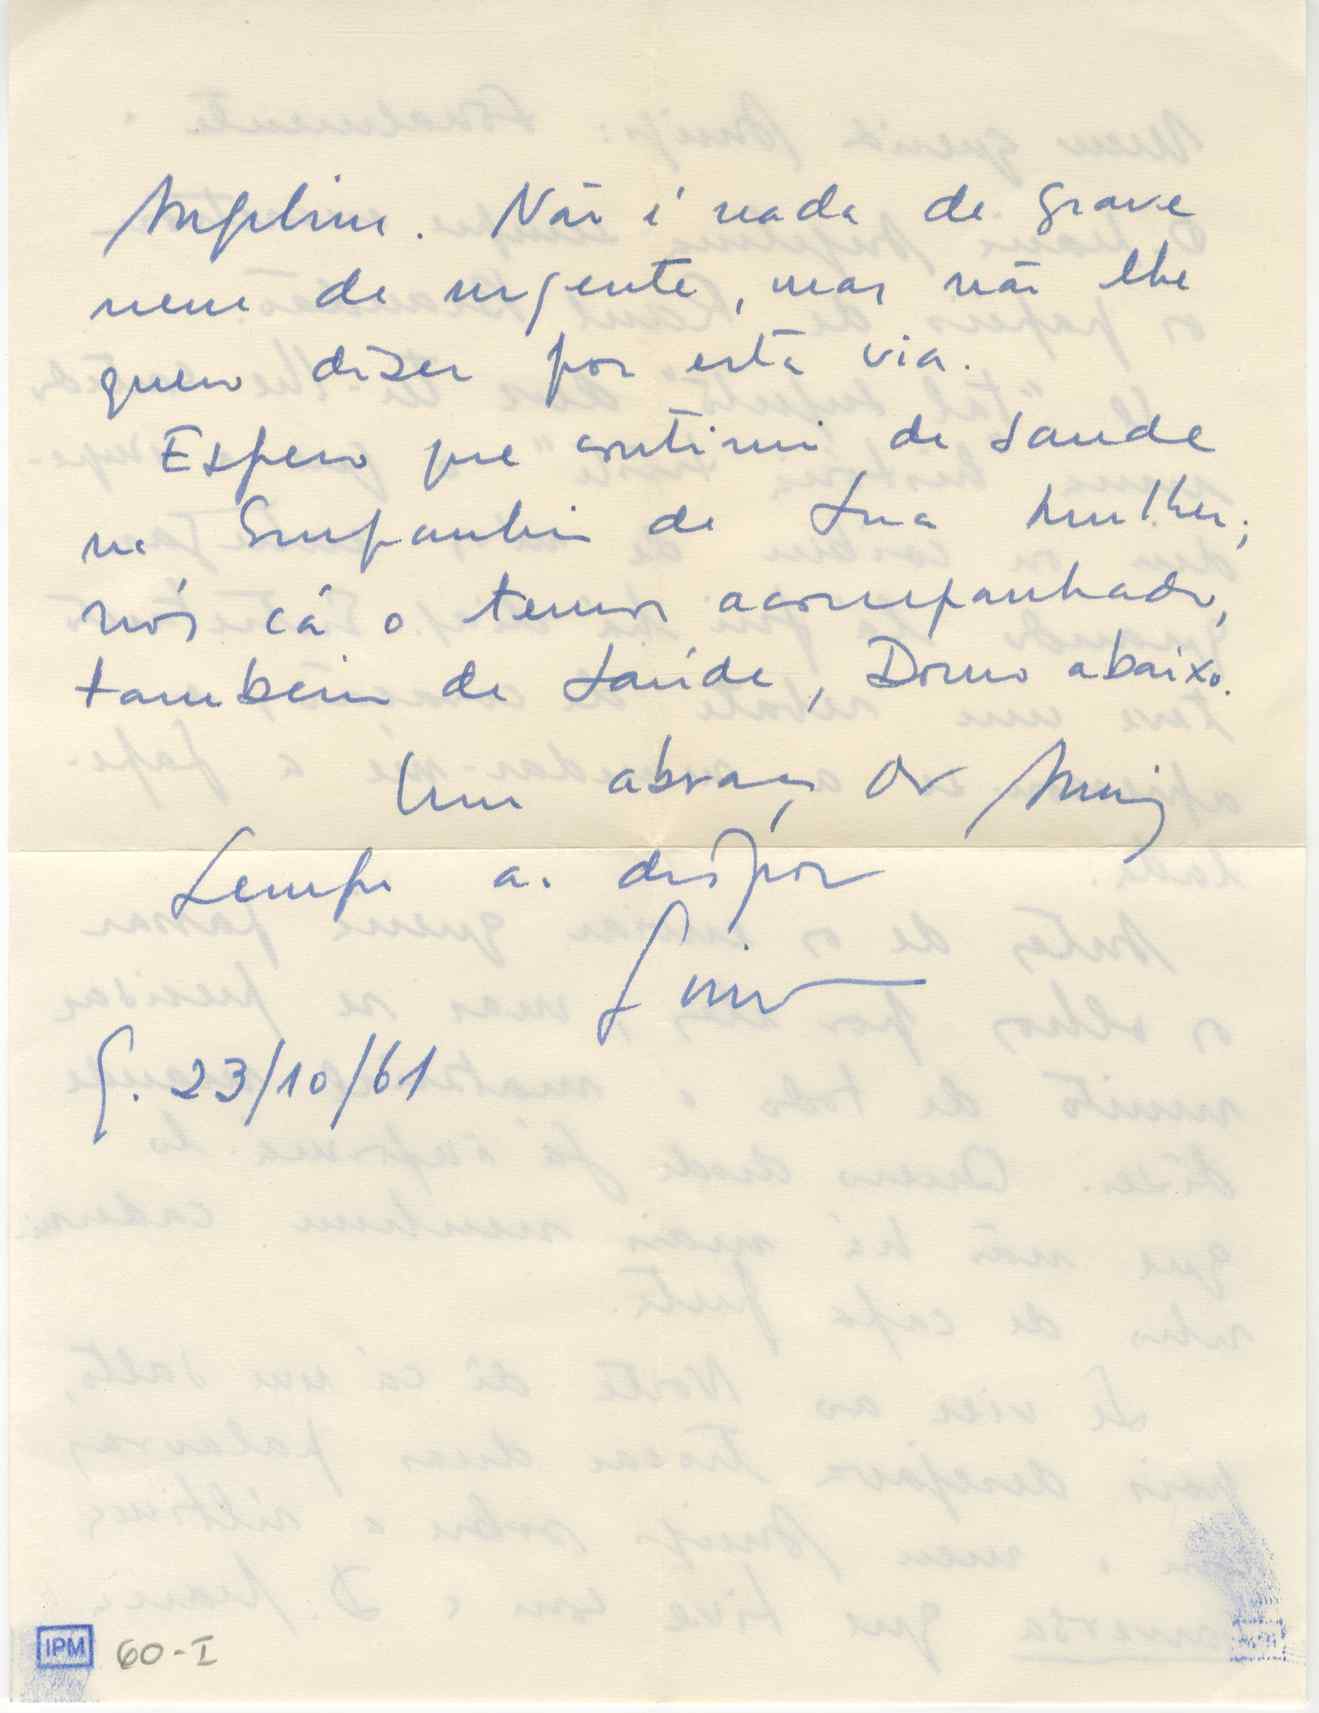 Angelina. Não é nada de grave
nem de urgente, mas não lhe
quero dizer por esta via.
Espero que continue de saude
na Companhia de Sua Mulher;
nós cá o temos acompanhado,
também de saúde, Douro abaixo.
Um abraço do Amigo
Sempre a. dispor
G. 23/10/61
IPM 60-I